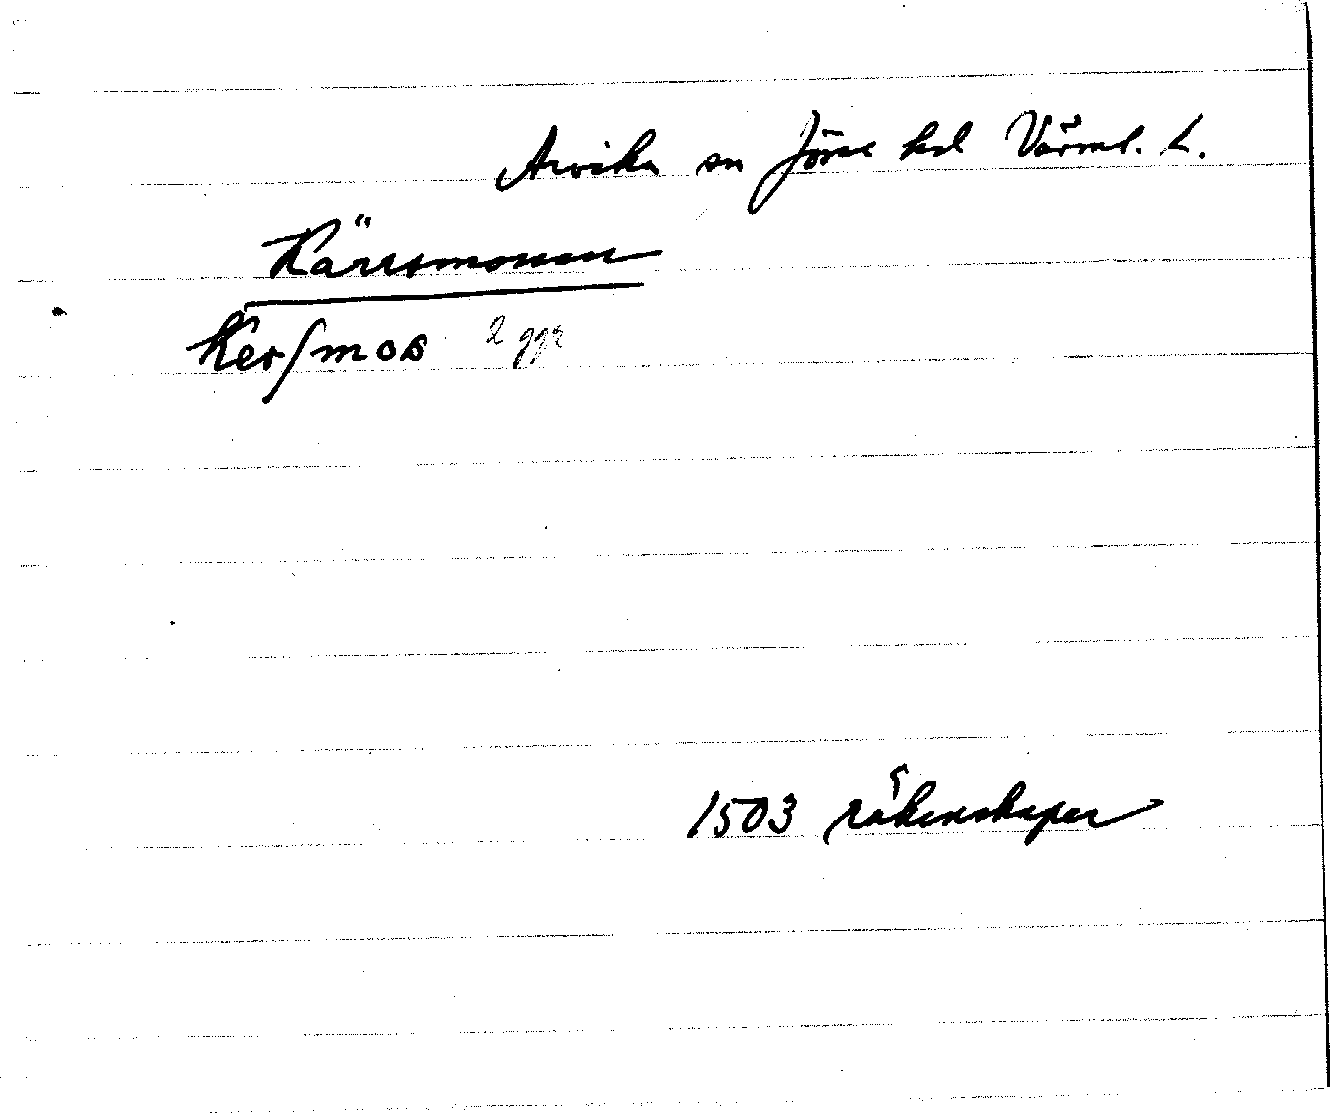 Arvika sn Jösse hd Värml. L.
Kärrsmossen
Kersmos 2 ggr
1503 räkenskaper